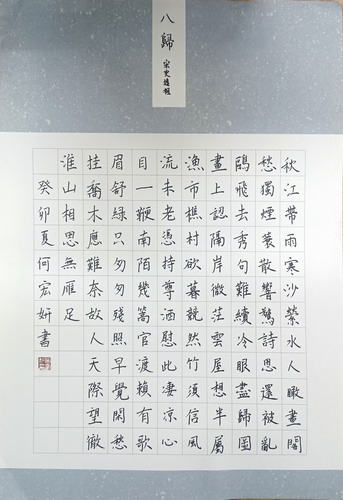 八歸
宋史達祖
秋江帶雨寒沙縈水人瞰畫閣
愁獨煙蓑散響驚詩思還被亂
鷗飛去秀句難續冷眼盡歸圖
畫上認隔岸微茫雲屋想半屬
漁市樵村欲暮競然竹須信風
流未老憑持尊酒慰此淒涼心
目一鞭南陌幾篙官渡賴有歌
眉舒綠只匆匆殘照早覺閑愁
挂喬木應難奈故人天際望徹
淮山相思無雁足
癸卯夏何宏妍書